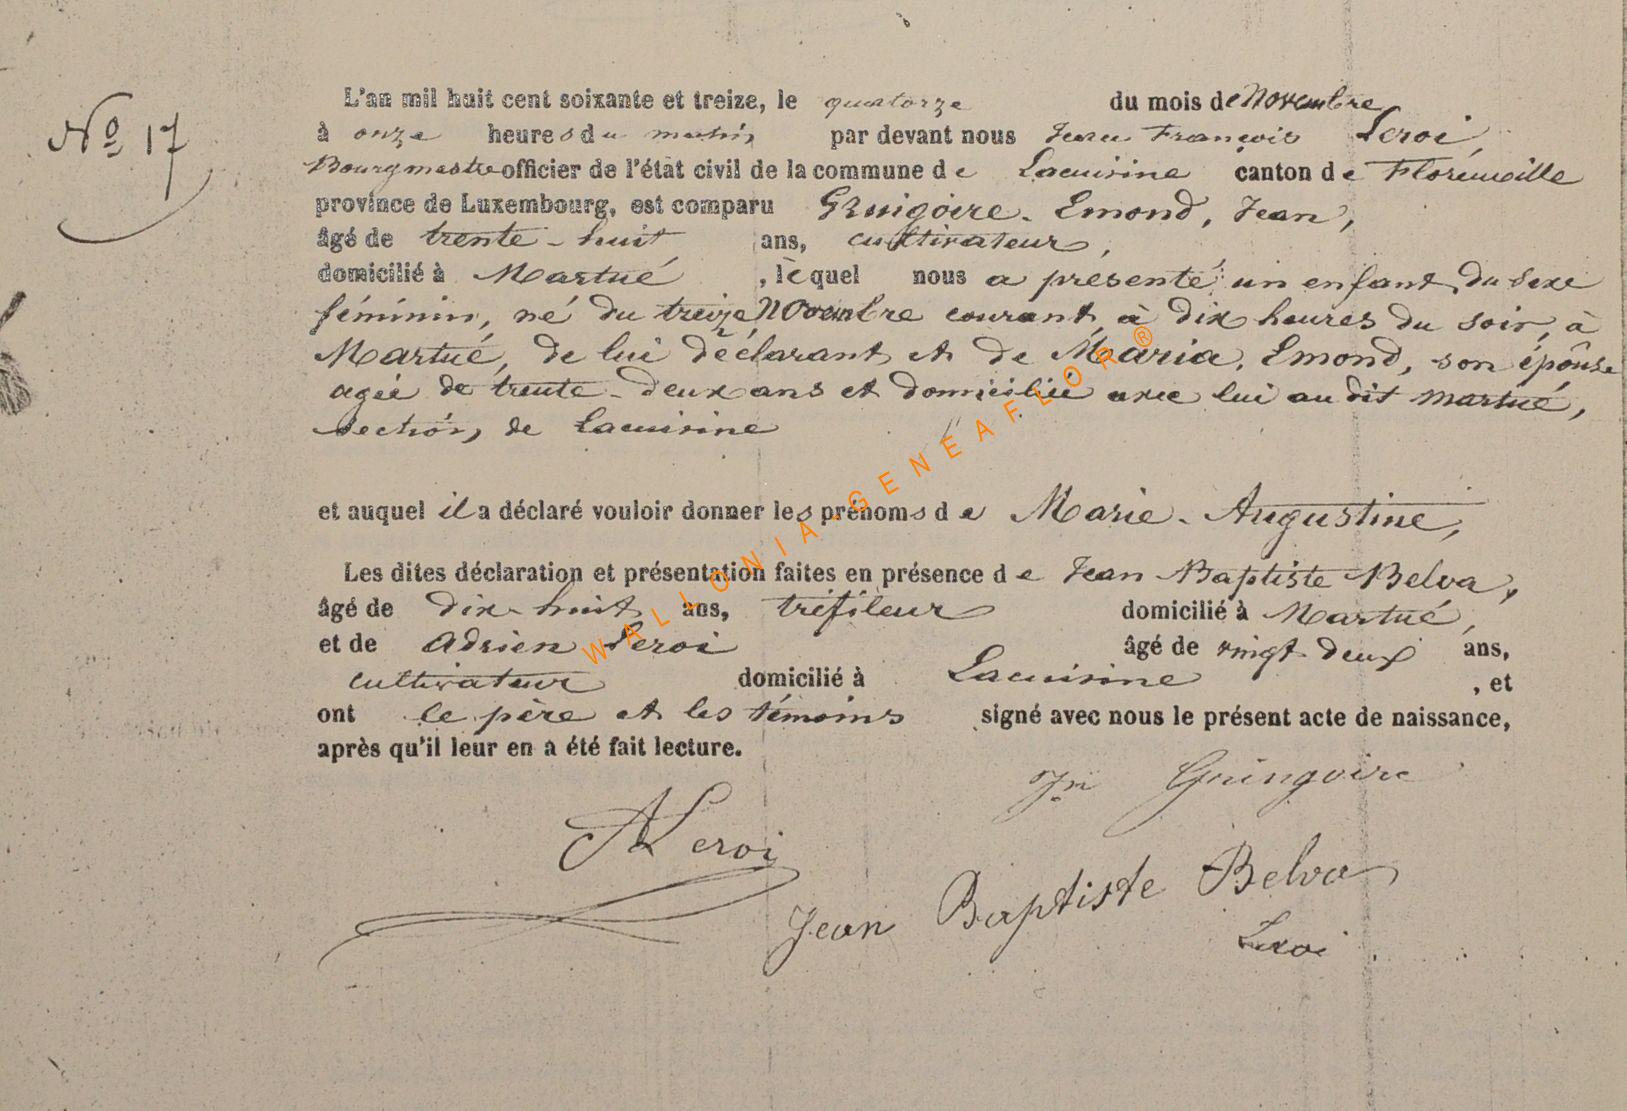 Nº 17
L'an mil huit cent soixante et treize, le quatorze du mois de Novembre
à onze heures du matin, par devant nous Jean François Leroi,
Bourgmestre officier de l'état civil de la commune de Lacuisine canton de Florenville
province de Luxembourg, est comparu Gringoire-Emond, Jean,
âgé de trente-huit ans, cultivateur,
domicilié à Martué, lequel nous a présenté un enfant du sexe
féminin, né du treize Novembre courant, à dix heures du soir, à
Martué, de lui déclarant et de Maria, Emond, son épouse
agée de trente-deux ans et domiciliée avec lui au dit Martué,
section, de Lacuisine
et auquel il a déclaré vouloir donner les prénoms de Marie-Augustine,
Les dites déclaration et présentation faites en présence de Jean-Baptiste Belva,
âgé de dix-huit ans, tréfileur domicilié à Martué,
et de Adrien Leroi âgé de vingt deux ans,
cultivateur domicilié à Lacuisine, et
ont le père et les témoins signé avec nous le présent acte de naissance,
après qu'il leur en a été fait lecture.
Jn Gringoire
A Leroi
Jean Baptiste Belva
Leroi
WALLONIA-GENEAFLOR®